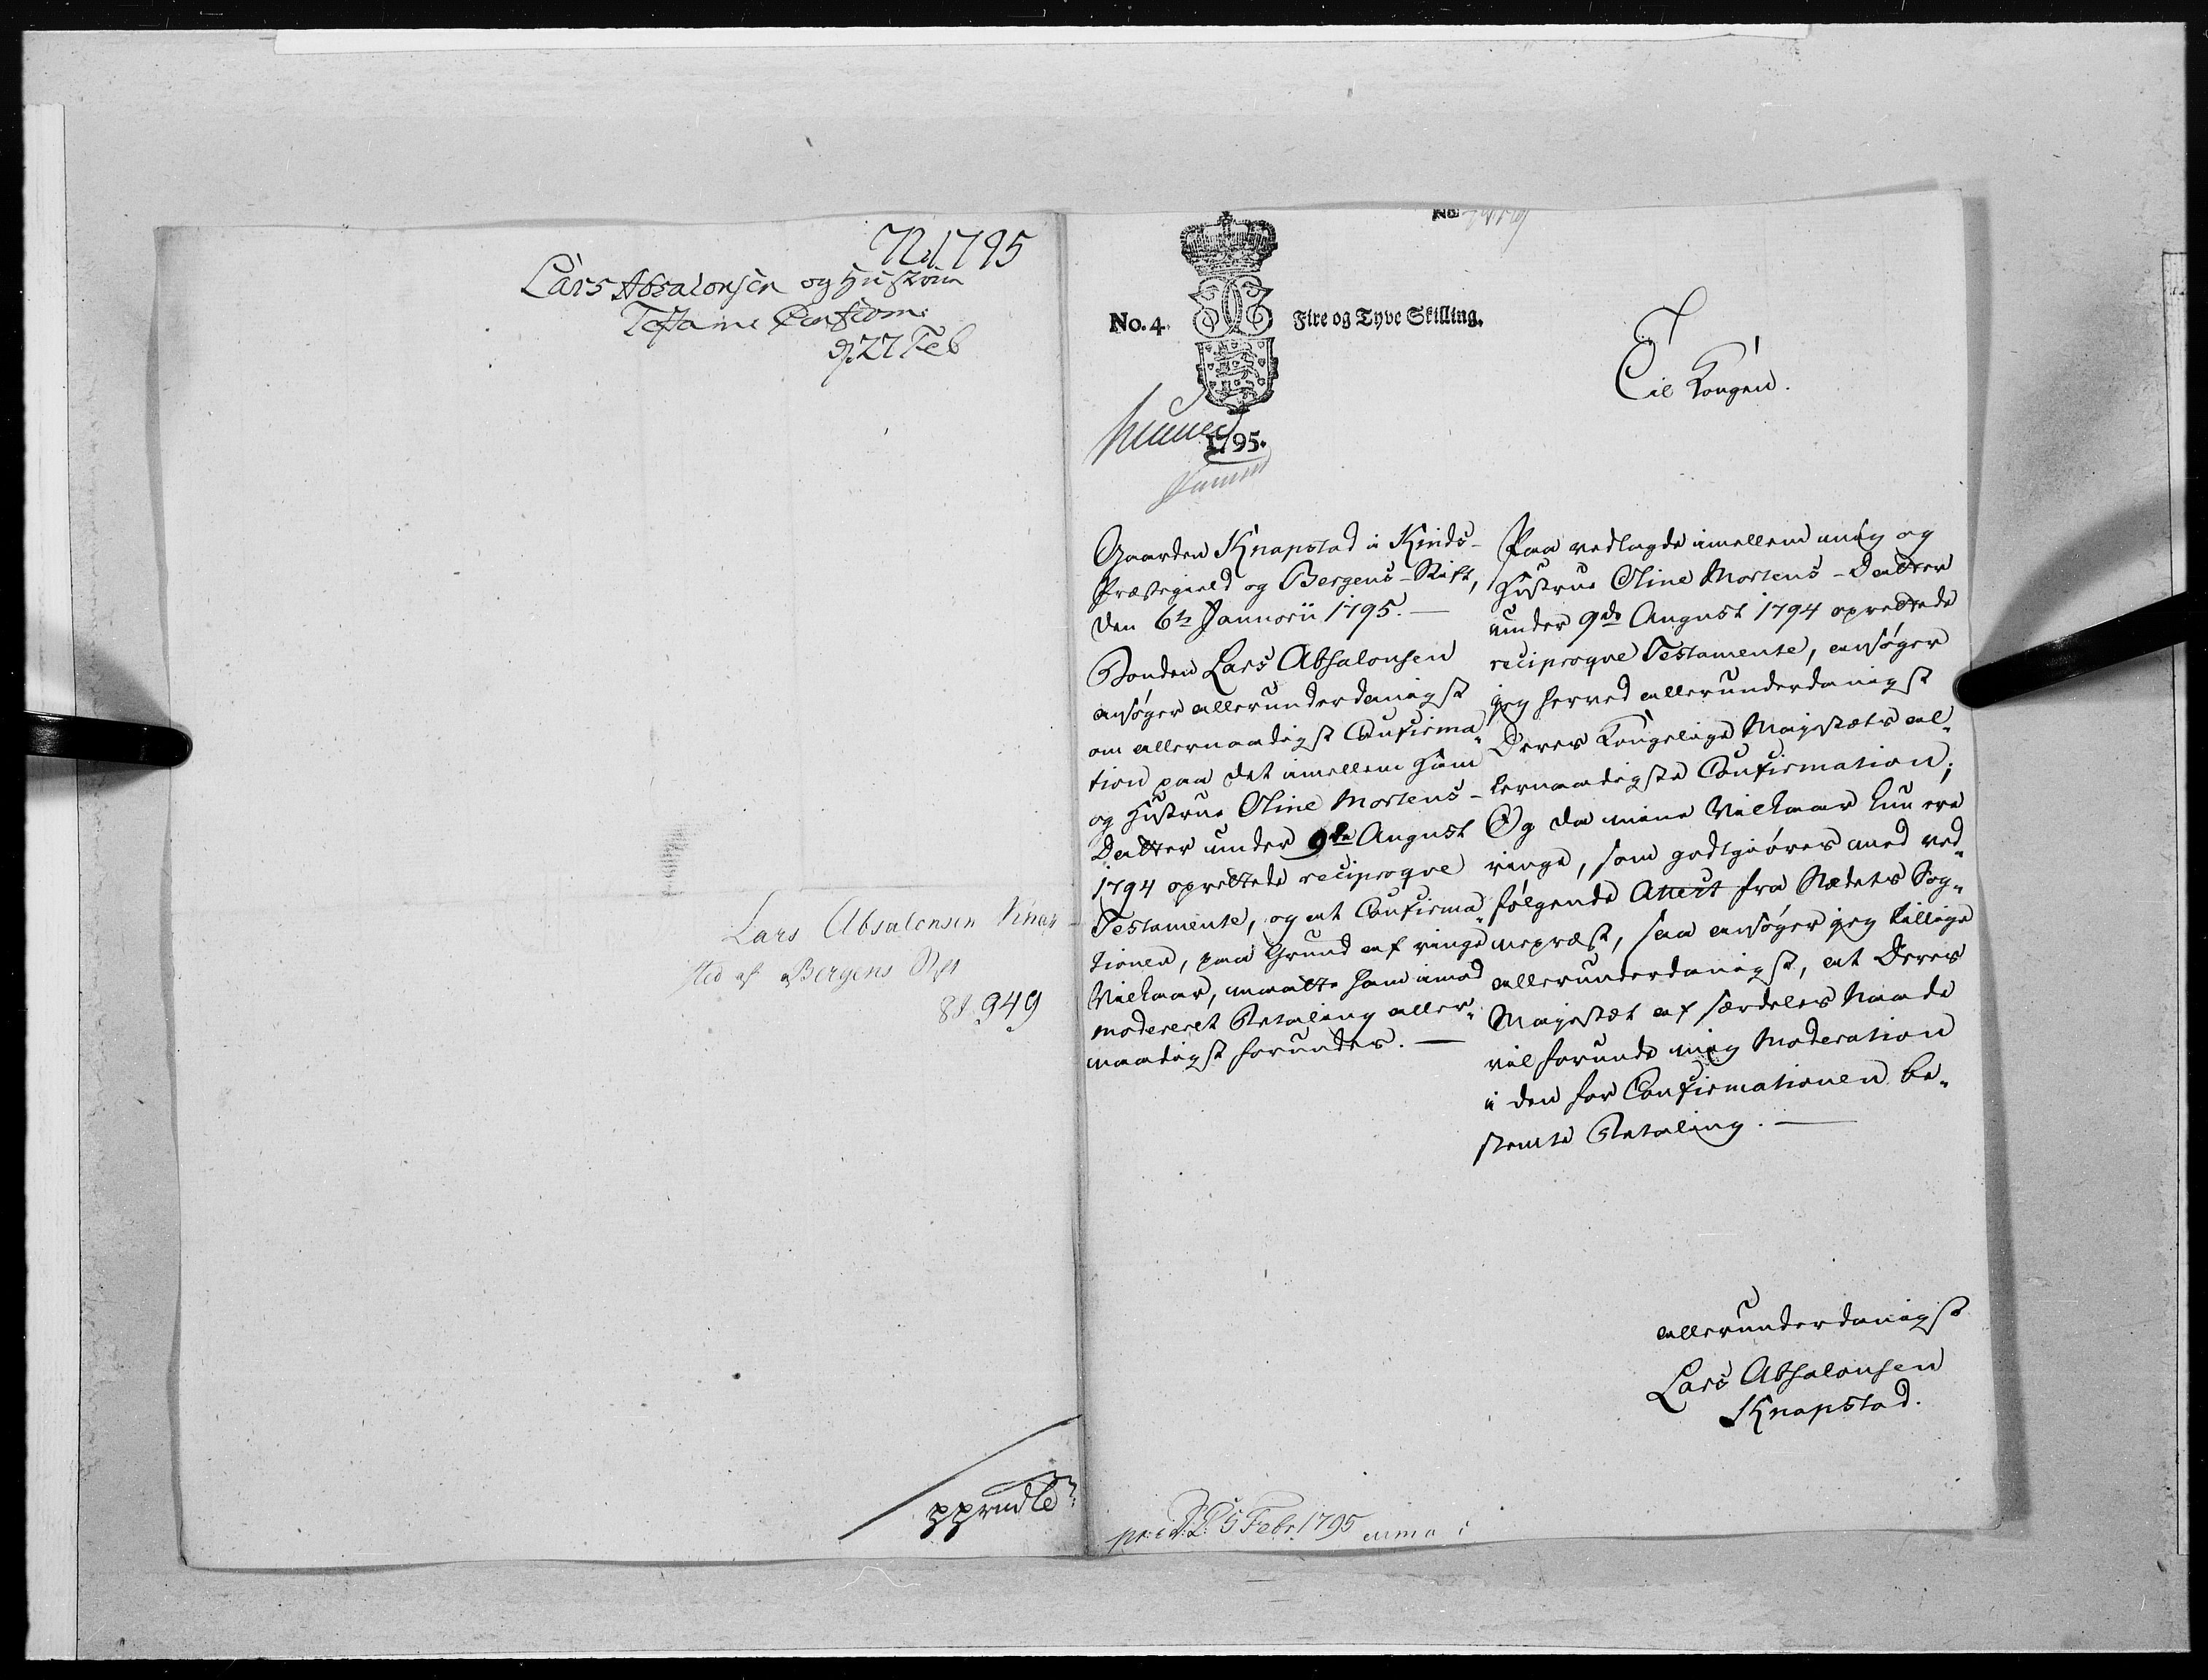 1795
Lars Absalonsen og Hustrue
Testam: Confirm:
d. 27 Feb
Lars Absalonsen Knap-
sted af Bergens Stift
949
No. 4. Fire og Tyve Skilling.
1795.
Til Kongen.
Gaarden Knapstad i Kinds-
Præstegield og Bergens-Stift,
den 6te Januarii 1795. —
Bonden Lars Absalonsen
ansøger allerunderdanigst
om allernaadigst Confirma-
tion paa det imellem ham
og Hustrue Oline Mortens-
Datter under 9de August
1794 oprettede reciproqve
Testamente, og at Confirma-
tionen, paa Grund af ringe
Vilkaar, maatte ham imod
modereret Betaling aller-
naadigst forundes. —
Paa vedlagde imellem mig og
Hustrue Oline Mortens-Datter
under 9de August 1794 oprettede
reciproqve Testamente, ansøger
jeg herved allerunderdanigst
Deres Kongelige Majestæts al-
lernaadigste Confirmation;
Og da mine Vilkaar kun ere
ringe, som godtgiøres med ved-
følgende Attest fra Stædets Sog-
nepræst, saa ansøger jeg tillige
allerunderdanigst, at Deres
Majestæt af særdeles Naade
vil forunde mig Moderation
i den for Confirmationen be-
stemte Betaling. —
allerunderdanigst
Lars Absalonsen
Knapstad.
5 Febr. 1795